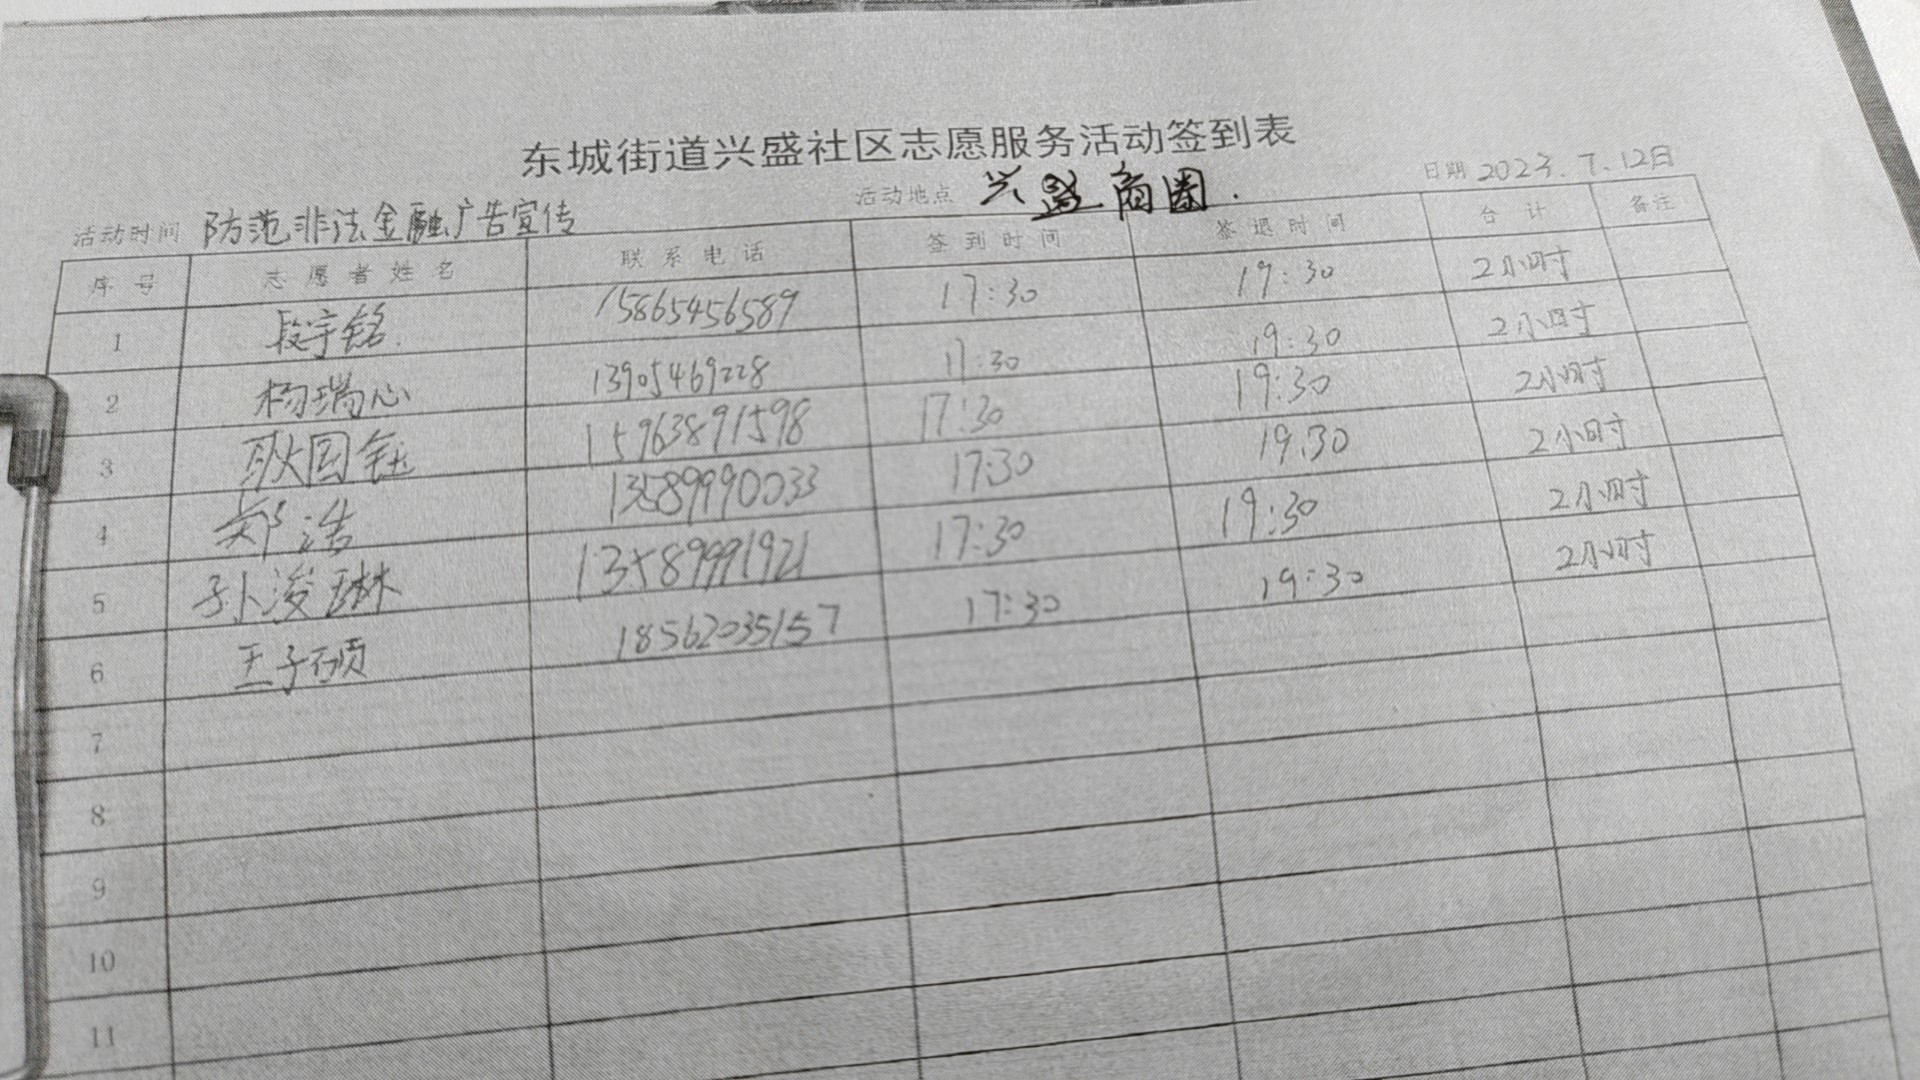 东城街道兴盛社区志愿服务活动签到表
活动时间 防范非法金融广告宣传 活动地点 兴盛商圈. 日期 2023.7.12日
序号 志愿者姓名 联系电话 签到时间 签退时间 合计 备注
1 段宇铭. 15865456589 17:30 19:30 2小时
2 杨瑞心 13905469228 17:30 19:30 2小时
3 耿国钰 15963891598 17:30 19:30 2小时
4 郑浩 13589990033 17:30 19.30 2小时
5 孙浚琳 13589991921 17:30 19:30 2小时
6 王子硕 18562035157 17:30 19:30 2小时
7
8
9
10
11